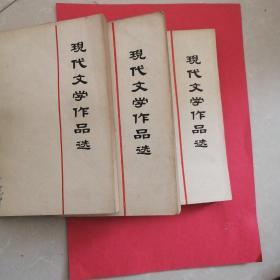 現代文学作品选
現代文学作品选
現代文学作品选